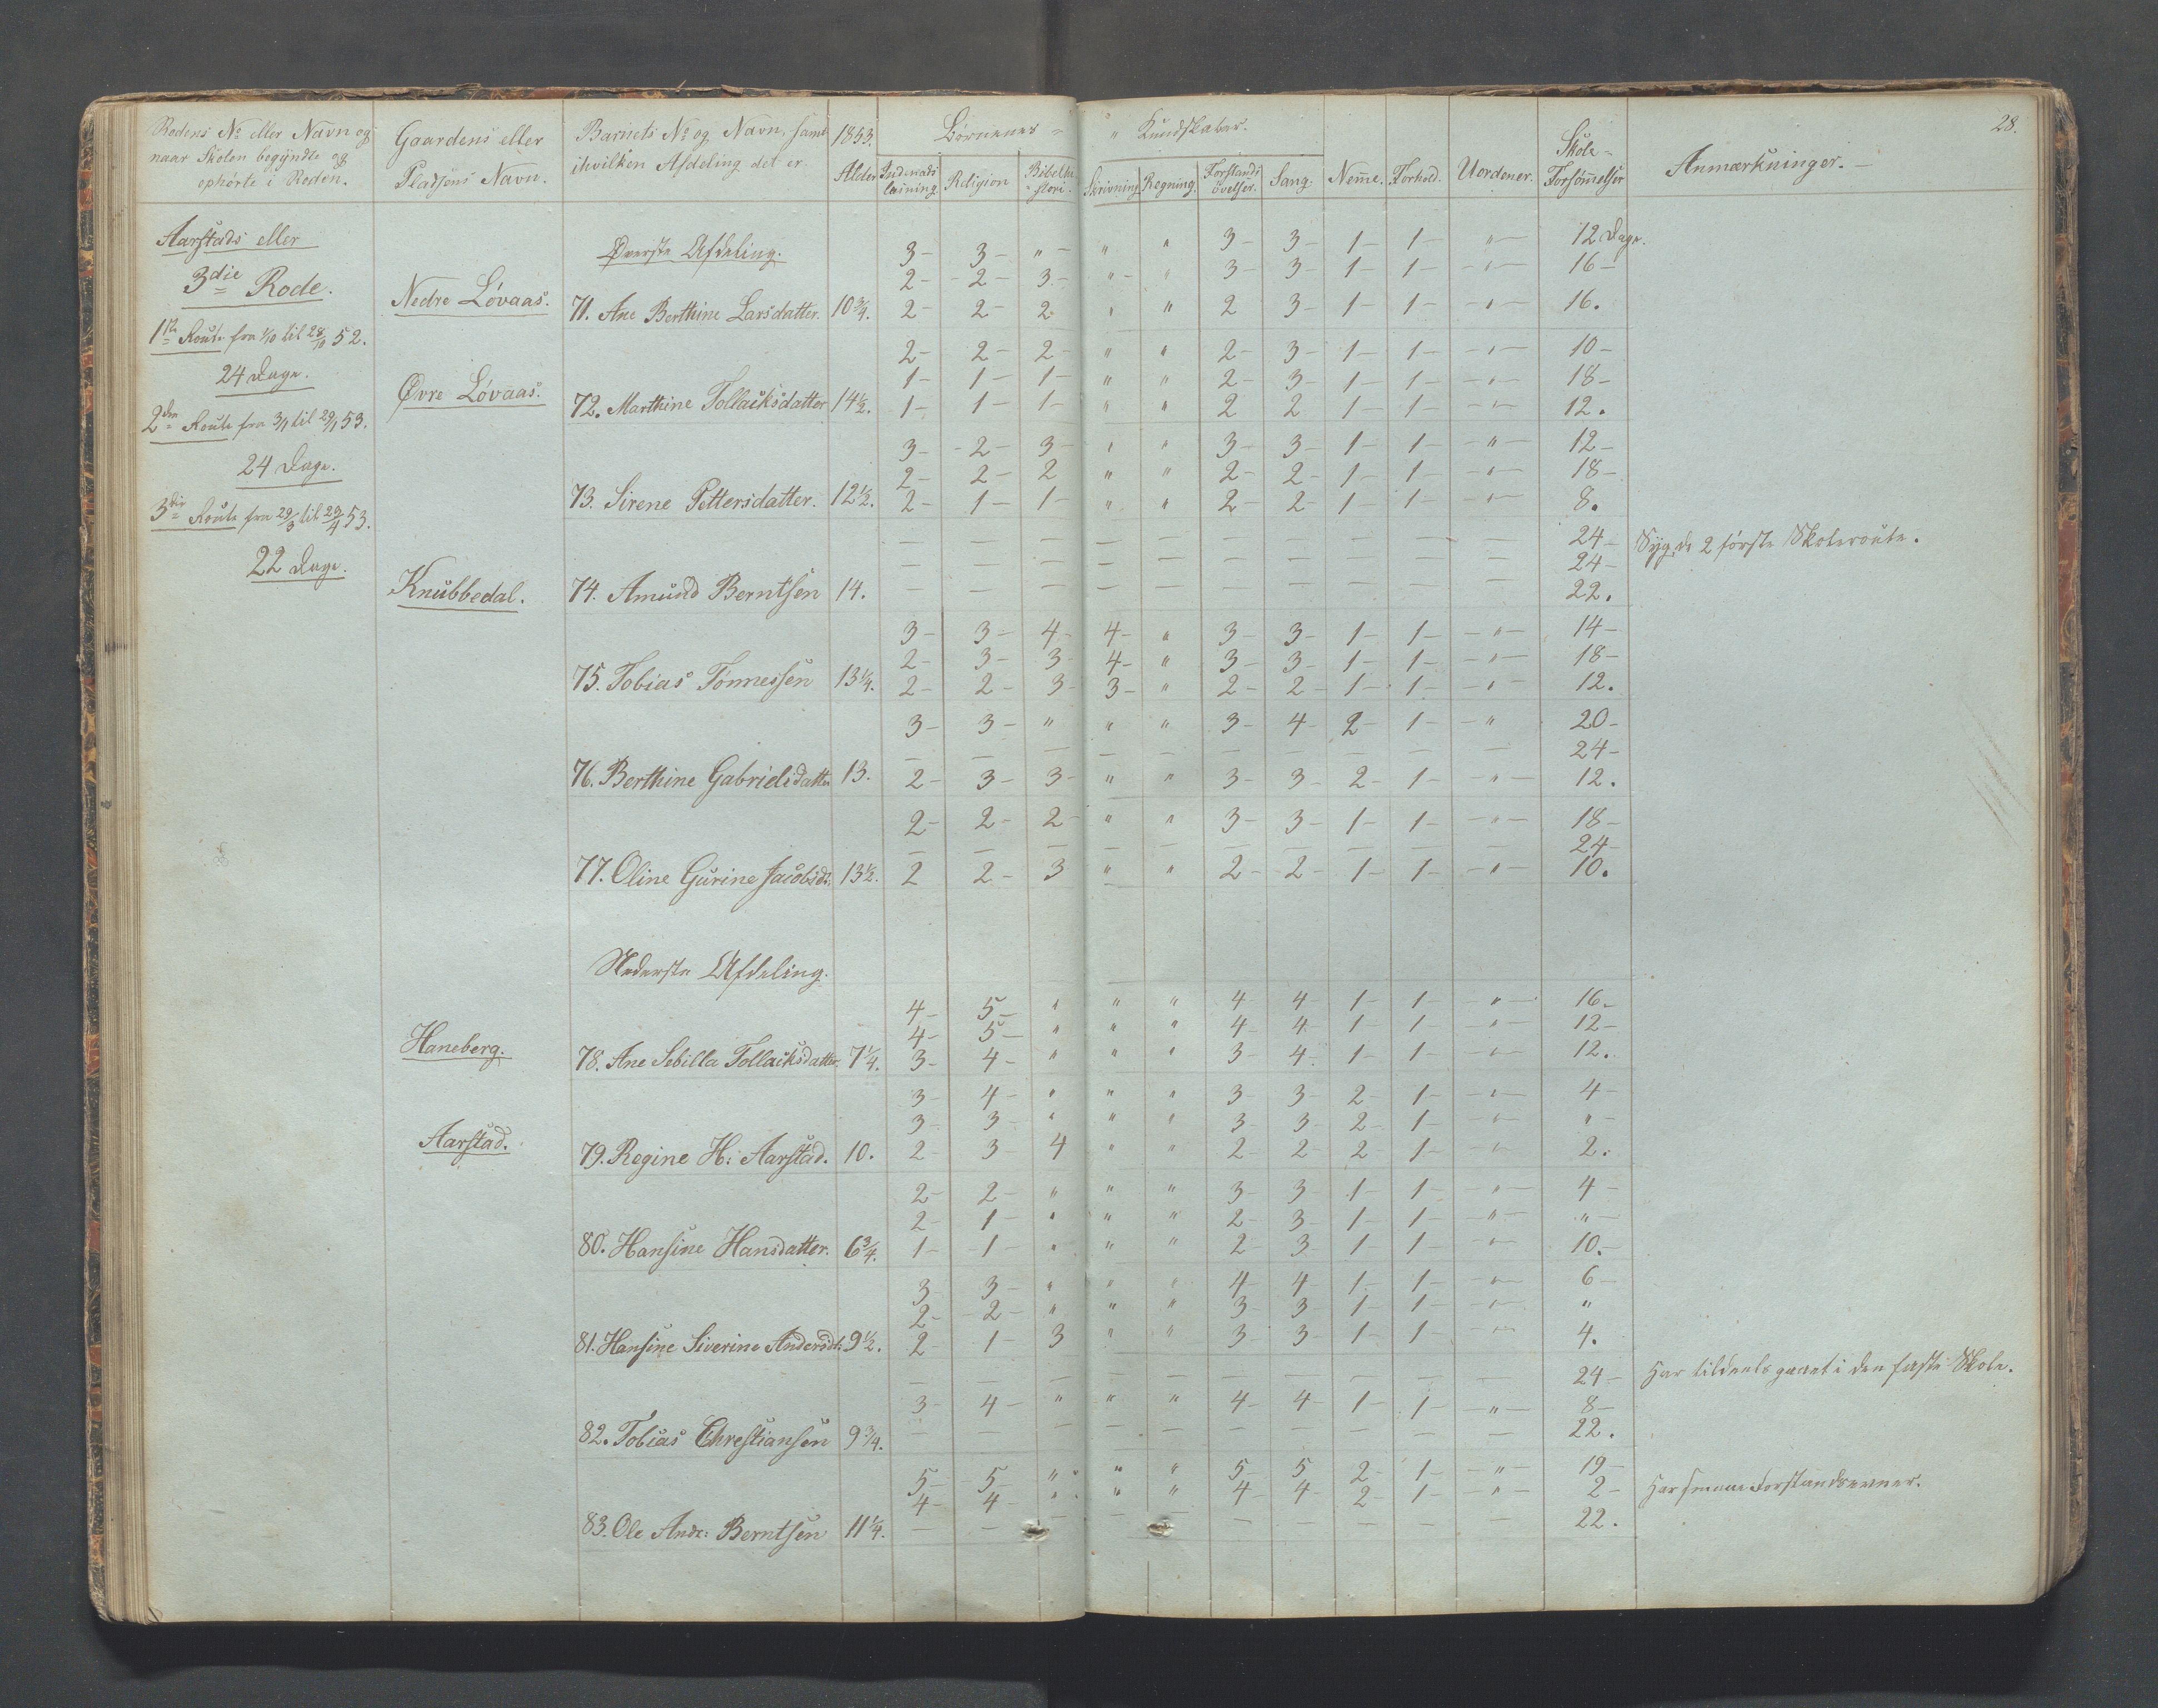 28.
Rodens No eller Navn og naar Skolen begyndte og ophørte i Roden.
Gaardens eller Pladsens Navn.
Barnets No og Navn, samt ihvilken Afdeling det er.
1853. Alder
Børnenes = " Kundskaber.
Indenads læsning Religion Bibelhistori. Skrivning Regning. Forstands øvelser. Sang. Nem̄e. Forhold. Uordener. Skole= Forsøm̄elser Anmærkninger.
Aarstads eller
3die Rode.
1ste Route fra 1/10 til 28/10 52.
24 Dage.
2den Route fra 3/1 til 29/1 53.
24 Dage.
3die Route fra 29/3 til 29/4 53.
22 Dage.
Øverste Afdeling.
3 – 3 – " – " " 3 – 3 – 1 – 1 – " – 12 Dage.
2 – 2 – 3 – " – " 3 – 3 – 1 – 1 – " – 16 –
Nedre Løvaas. 71. Ane Berthine Larsdatter. 10 3/4. 2 – 2 – 2 " " 2 3 – 1 – 1 – " – 16.
2 – 2 – 2 – " " 2 – 3 – 1 – 1 – " – 10 –
1 – 1 – 1 – " " 2 – 3 – 1 – 1 – " – 18 –
Øvre Løvaas. 72. Marthine Tollaksdatter 14 1/2. 1 – 1 – 1 – " " 2 2 1 – 1 – " – 12.
3 – 2 – 3 – " " 3 – 3 – 1 – 1 – " – 12 –
2 – 2 – 2 " " 2 – 2 – 1 – 1 – " – 18 –
73. Sirene Pettersdatter. 12 1/2. 2 – 1 – 1 – " " 2 – 2 – 1 – 1 – " – 8.
– – – – – – – – – – 24 – Syg de 2 første Skoleroute.
– – – – – – – – – – 24 –
Knubbedal. 74. Amund Berntsen 14. – – – – – – – – – – 22.
3 – 3 – 4 – 4 – " 3 – 3 – 1 – 1 – " – 14 –
2 – 3 – 3 – 4 – " 3 – 3 – 1 – 1 – " – 18 –
75. Tobias Tønnessen 13 1/4. 2 – 2 – 3 – 3 – " 2 – 2 – 1 – 1 – " – 12.
3 – 3 – " " " 3 – 4 – 2 – 1 – " 20 –
– – – – – – – – – – 24 –
76. Berthine Gabrielsdatter 13. 2 – 3 – 3 – " " 3 – 3 – 2 – 1 – " – 12.
2 – 2 – 2 – " " 3 – 3 – 1 – 1 – " – 18 –
– – – – – – – – – – 24 –
77. Oline Gurine Jacobsdr. 13 1/2. 2 2 – 3 " " 2 – 2 – 1 – 1 – " – 10.
Nederste Afdeling.
4 – 5 – " " " 4 4 1 – 1 – " – 16 –
4 – 5 – " " " 4 – 4 – 1 – 1 – " – 12 –
Haneberg. 78. Ane Sebilla Tollaksdatter. 7 1/4. 3 – 4 – " " " 3 – 4 – 1 – 1 – " – 12.
3 – 4 – " " " 3 – 3 – 2 – 1 – " – 4 –
3 – 3 – " " " 3 – 3 – 2 – 1 – " – " –
Aarstad. 79. Regine H: Aarstad. 10. 2 – 3 – 4 " " 2 – 2 – 2 – 1 – " – 2.
2 – 2 – " " " 3 – 3 – 1 – 1 – " – 4 –
2 – 1 – " " " 2 – 3 – 1 – 1 – " – " –
80. Hansine Hansdatter. 6 3/4. 1 – 1 – " " " 2 – 3 – 1 – 1 – " – 10. –
3 3 – " " " 4 – 4 – 1 – 1 – " – 6 –
2 – 2 – " " " 3 – 3 – 1 – 1 – " – "
81. Hansine Siverine Andersdr. 9 1/2. 2 – 1 – 3 " " 3 – 3 – 1 – 1 – " – 4.
– – – – – – – – – – 24 – Har tildeels gaaet i den faste Skole.
3 – 4 – " " " 4 – 4 – 1 – 1 – " – 8 –
82. Tobias Christiansen 9 3/4. – – – – – – – – – – 22.
5 – 5 – " " " 5 – 5 2 – 1 – " – 19 –
4 – 4 – " " " 4 – 4 – 2 – 1 – " – 2 – Har smaae Forstandsevner.
83. Ole Andr: Berntsen 11 1/4. – – – – – – – – – – 22.